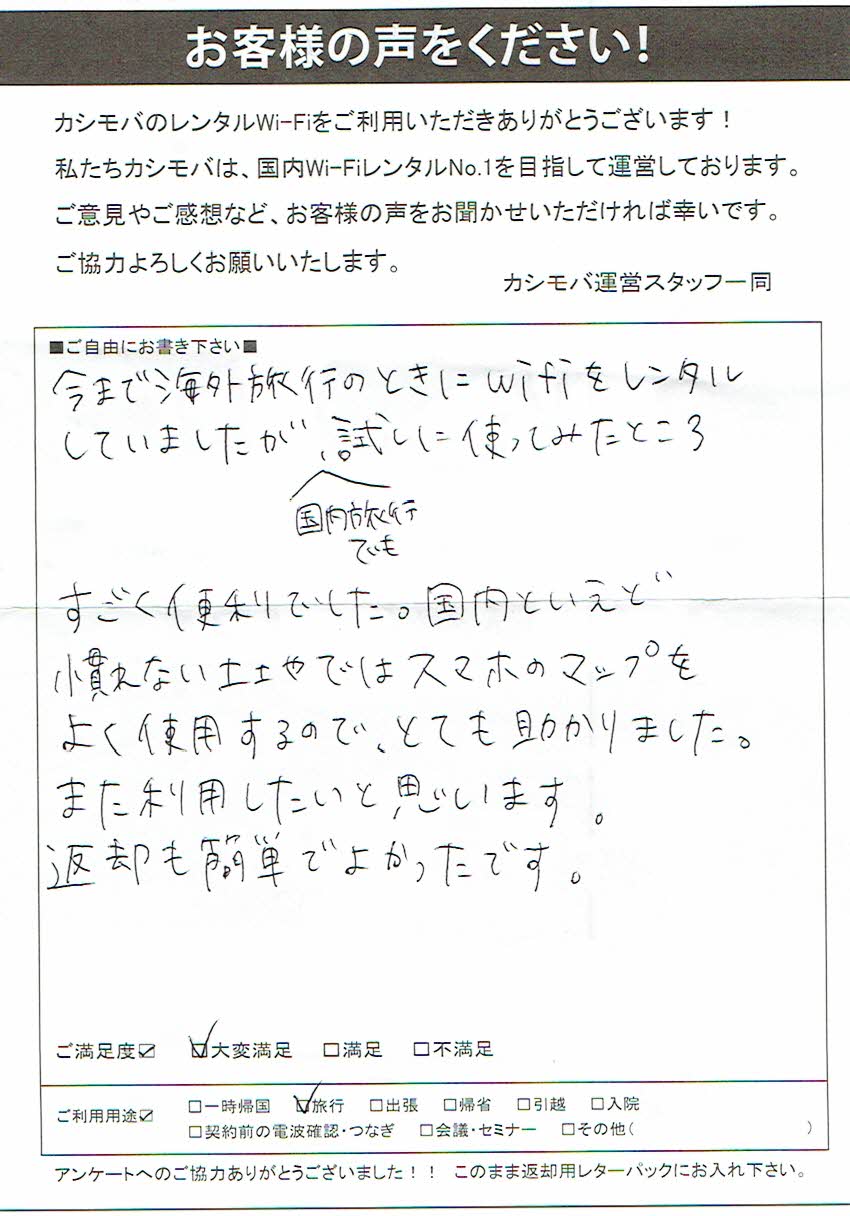 お客様の声をください!
カシモバのレンタルWi-Fiをご利用いただきありがとうございます!
私たちカシモバは、国内Wi-FiレンタルNo.1を目指して運営しております。
ご意見やご感想など、お客様の声をお聞かせいただければ幸いです。
ご協力よろしくお願いいたします。
カシモバ運営スタッフ一同
■ご自由にお書き下さい■
今まで海外旅行のときにwifiをレンタル
していましたが、試しに使ってみたところ
国内旅行
でも
すごく便利でした。国内といえど
慣れない土地ではスマホのマップを
よく使用するので、とても助かりました。
また利用したいと思います。
返却も簡単でよかったです。
ご満足度☑ ☑大変満足 □満足 □不満足
ご利用用途☑ □一時帰国 ☑旅行 □出張 □帰省 □引越 □入院
□契約前の電波確認・つなぎ □会議・セミナー □その他( )
アンケートへのご協力ありがとうございました!! このまま返却用レターパックにお入れ下さい。